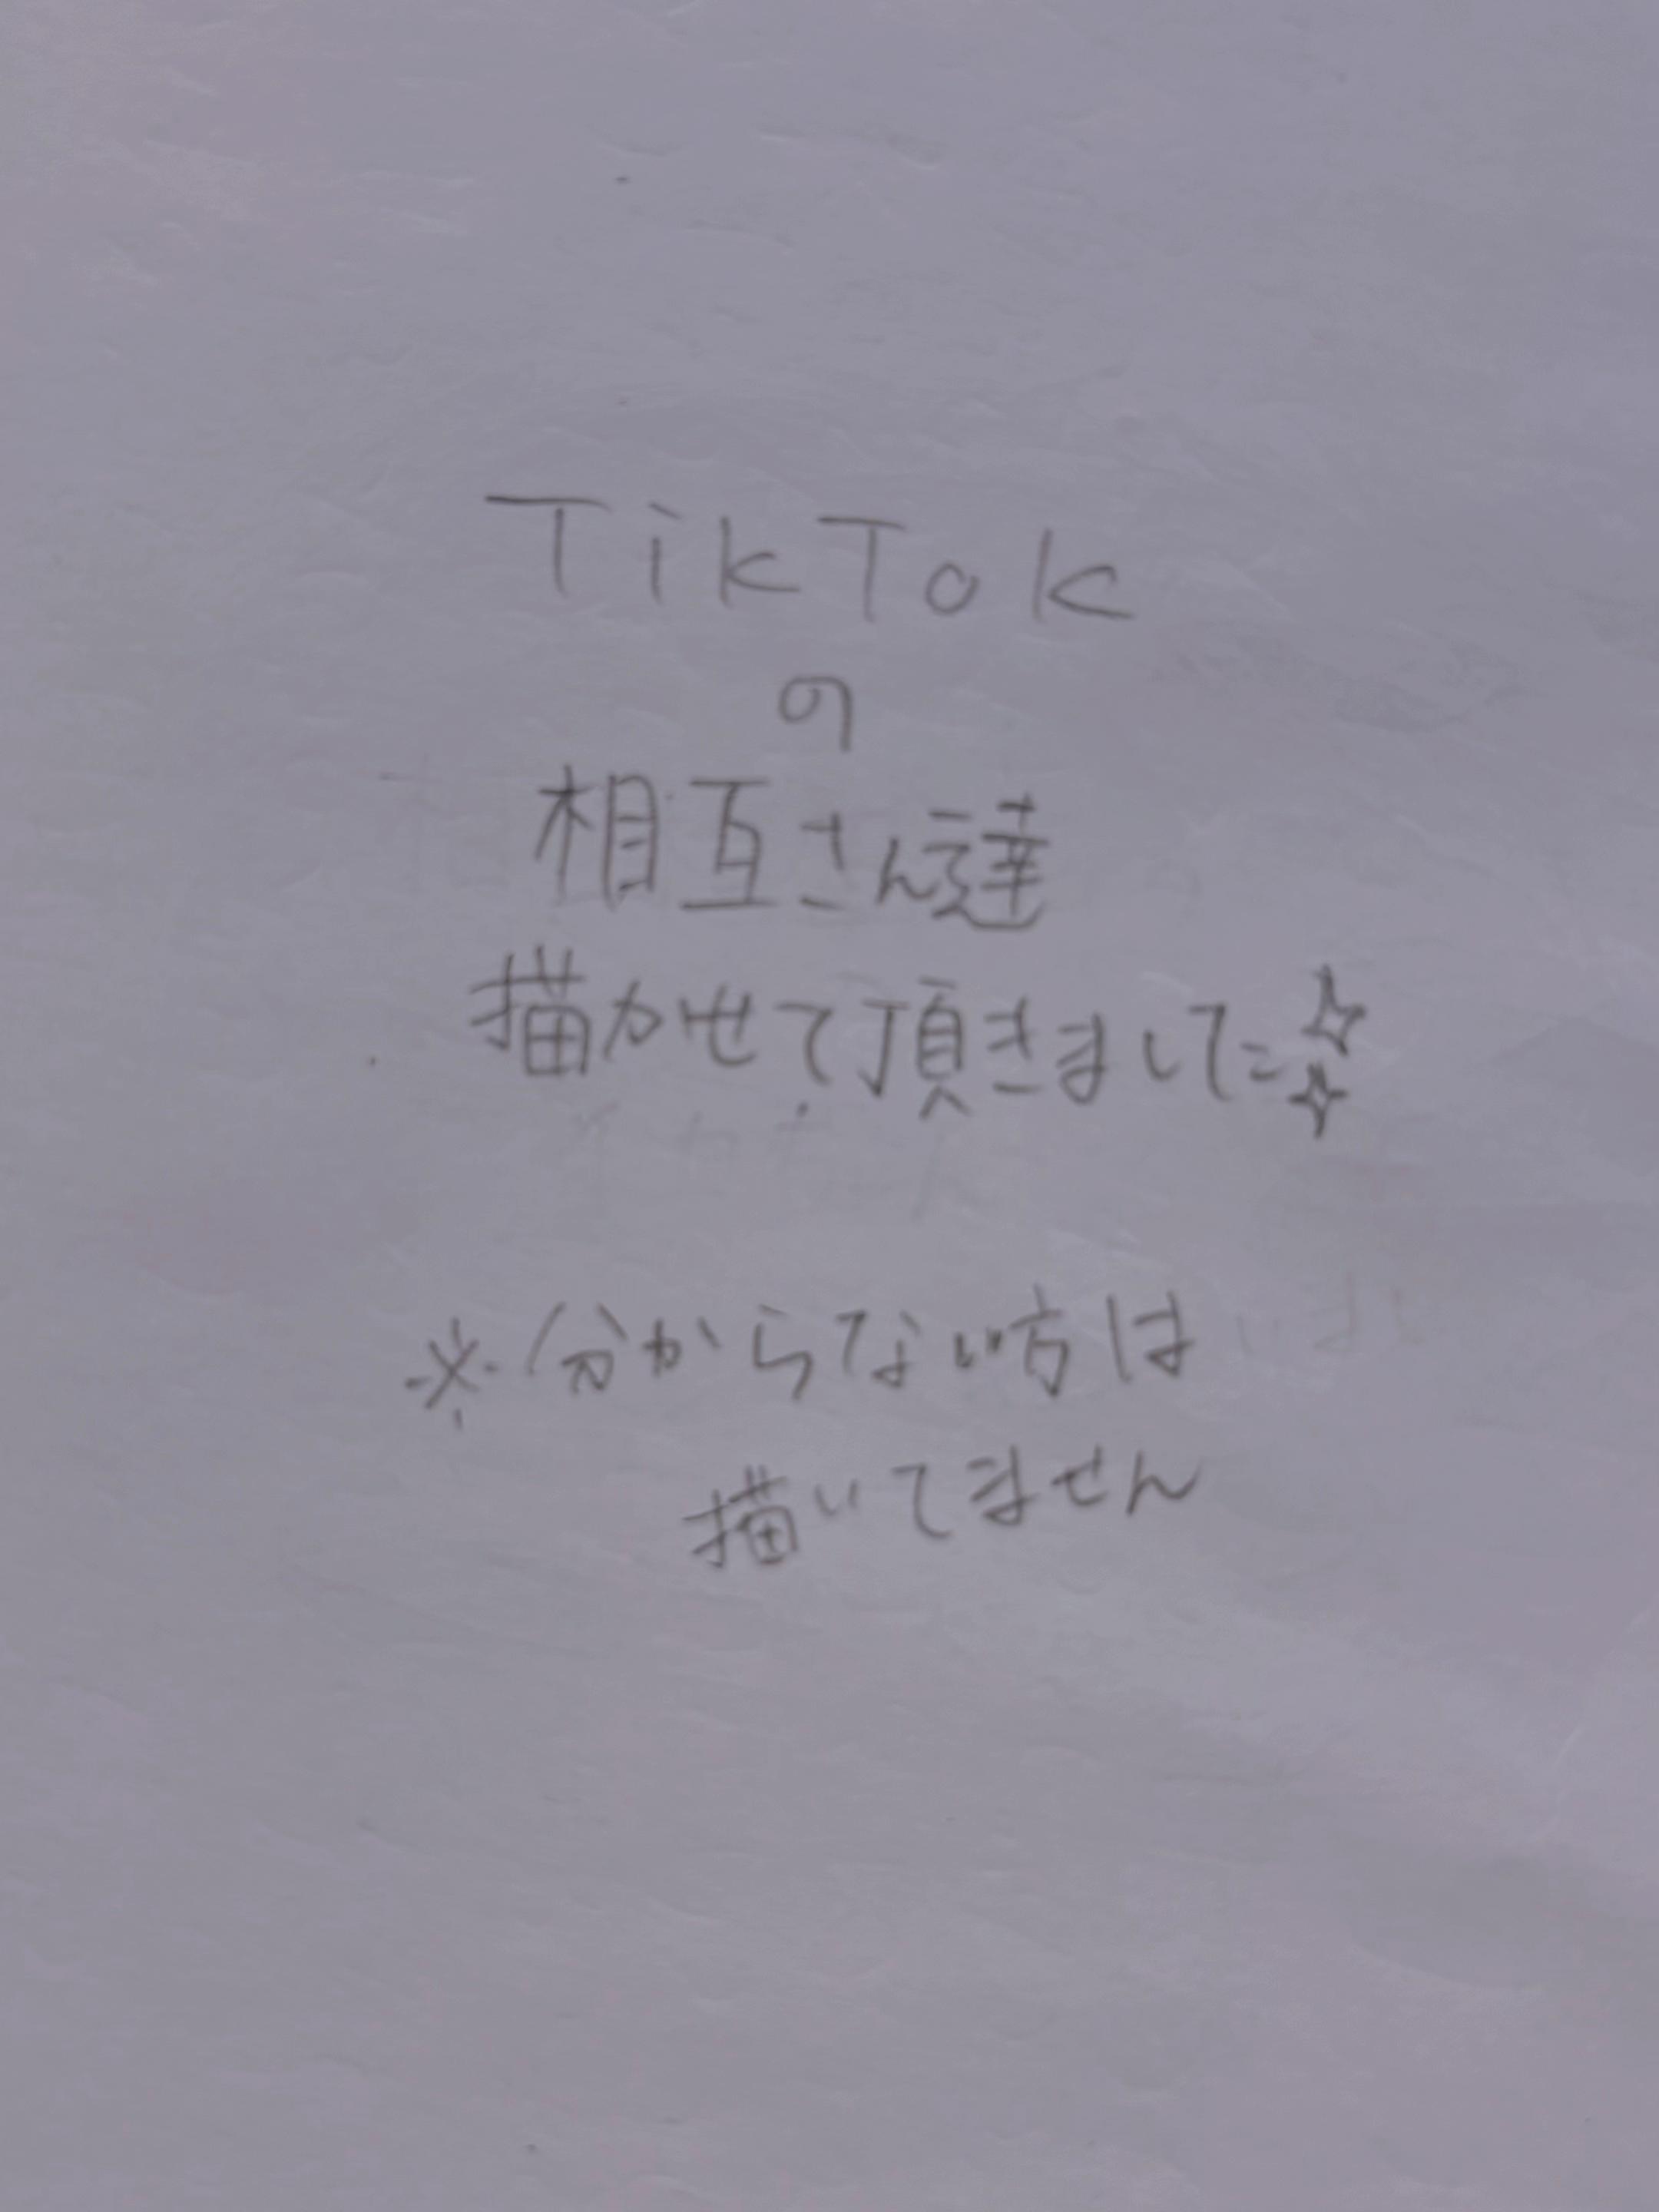 TikTok
の
相互さん達
描かせて頂きました
※分からない方は
描いてません